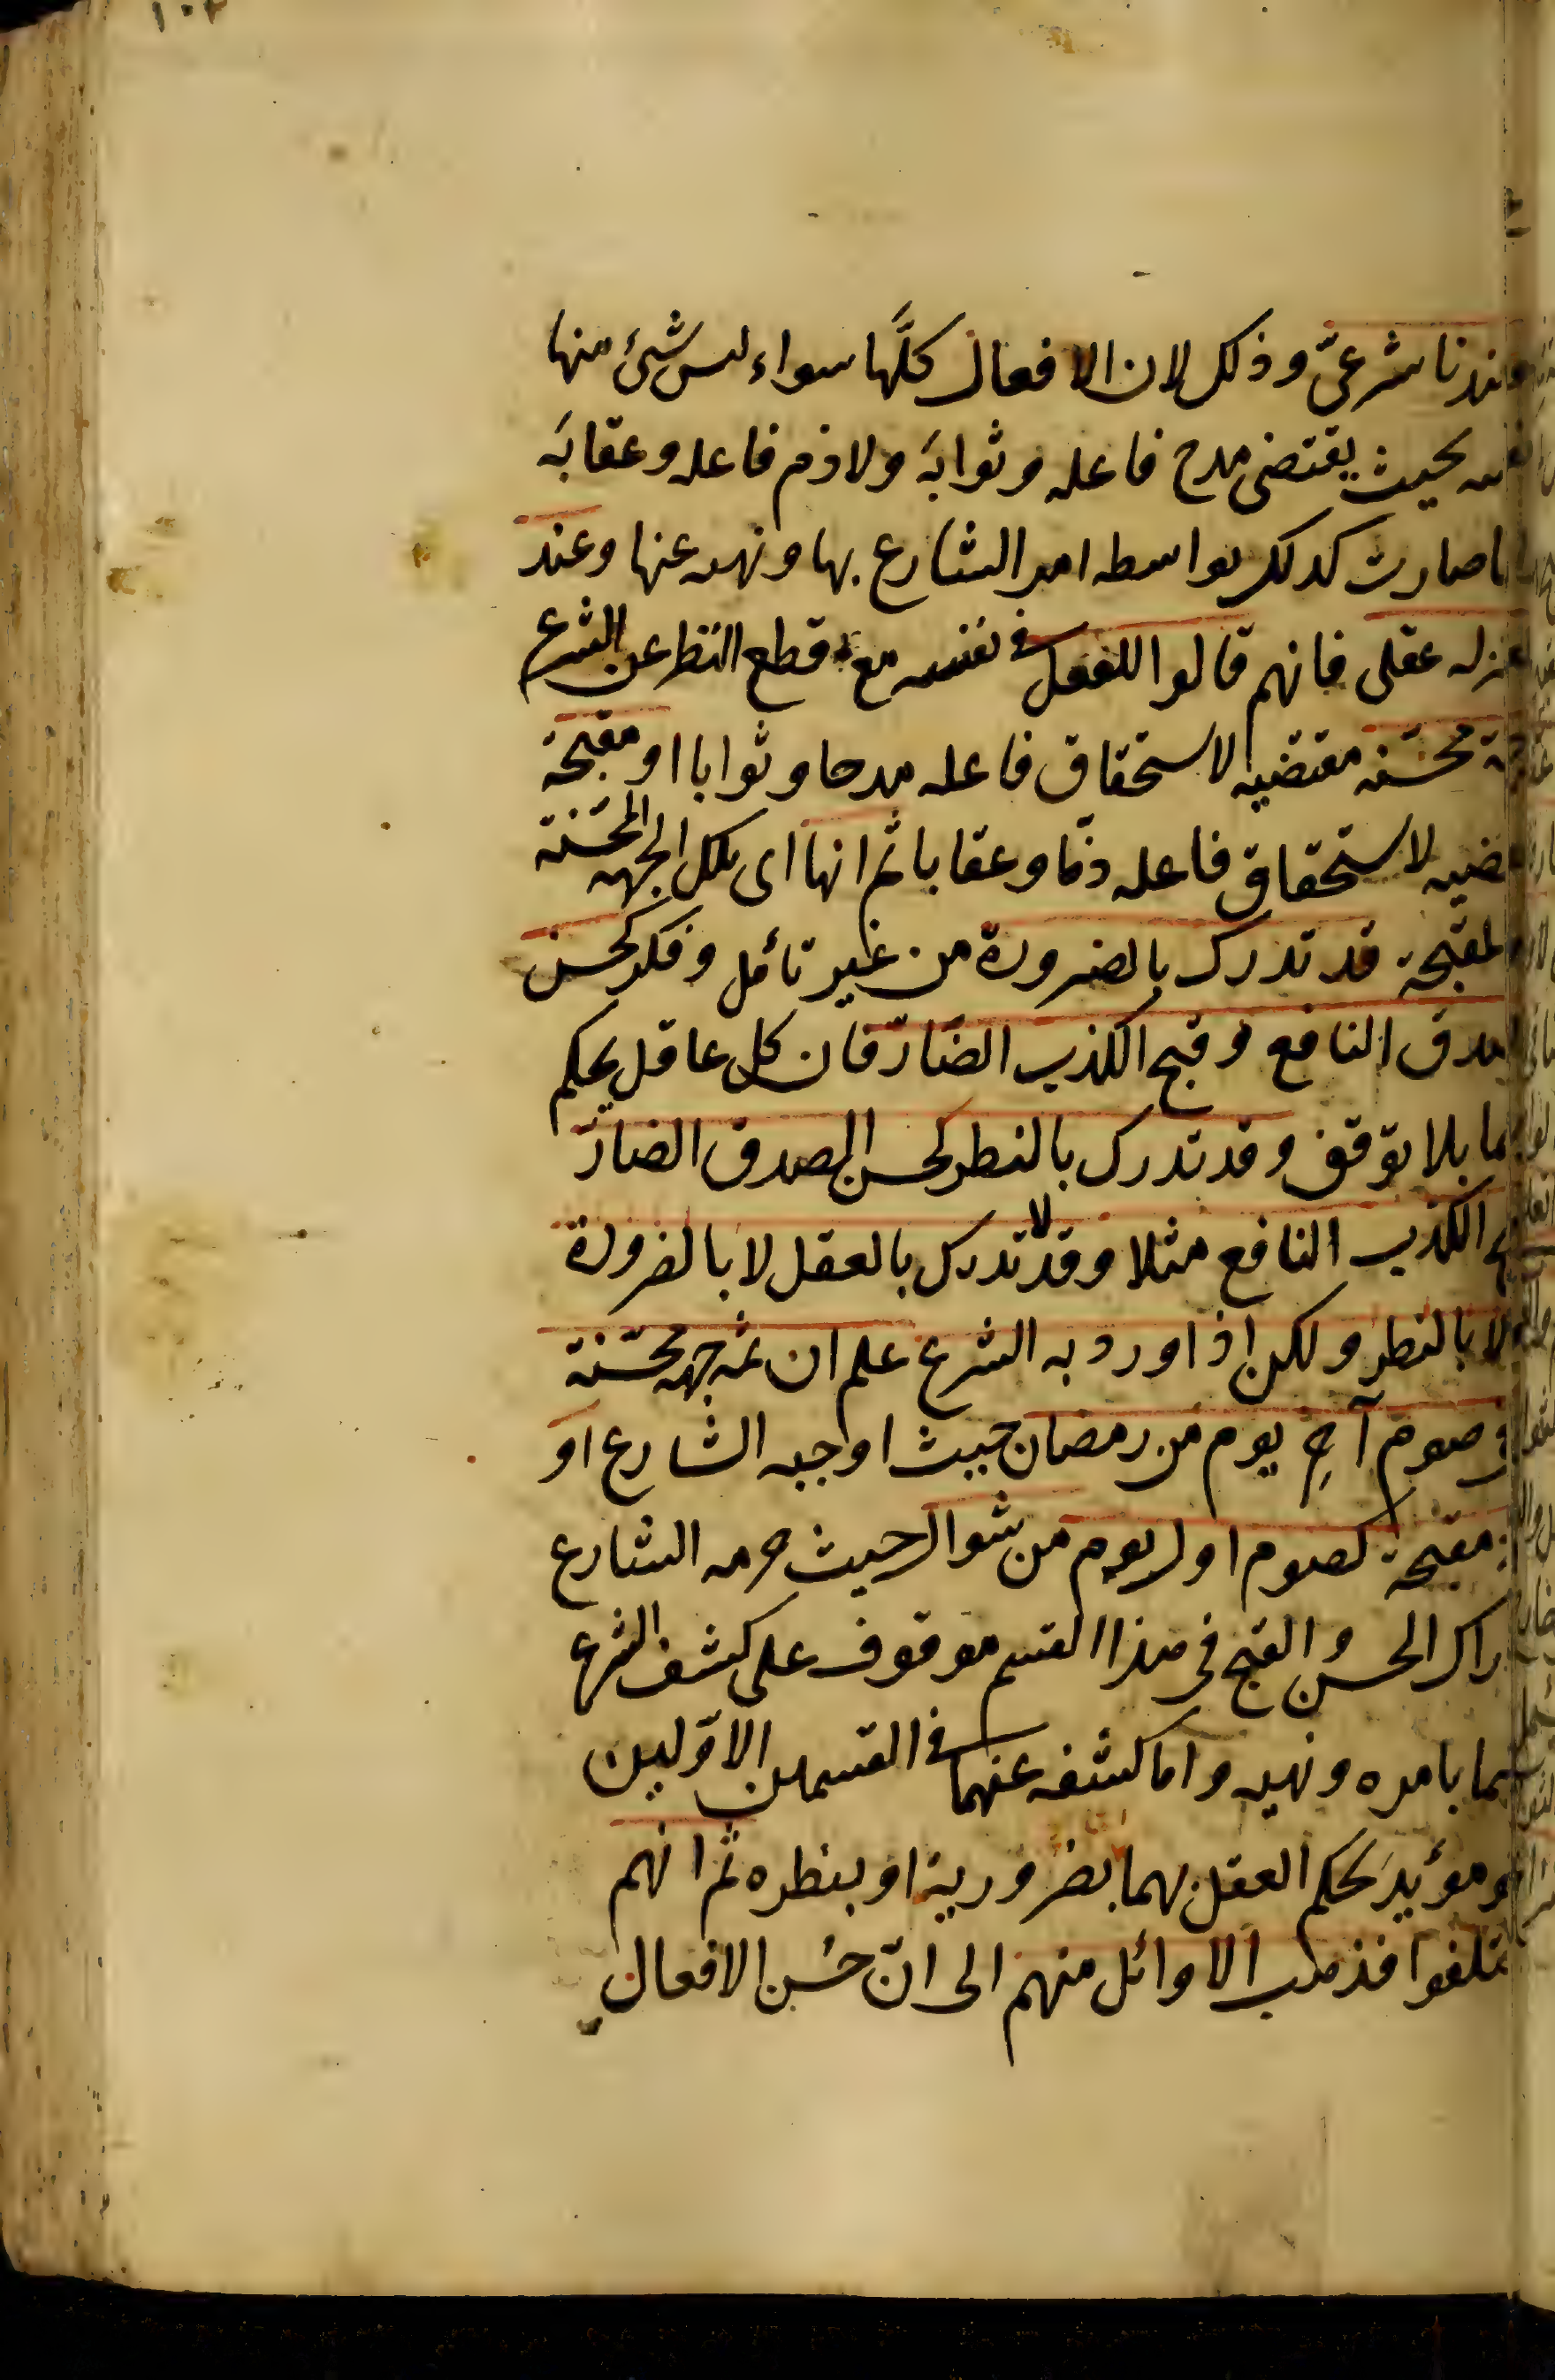 ١٠٢
عندنا شرعىّ وذلك لان الافعال كلَّها سواء ليس شئ منها
نفسه بحيث يقتضى مدح فاعله وثوابَه ولا ذم فاعله وعقابَه
ما صارت كذلك بواسطه امر الشارع بها ونهيه عنها وعند
عتزله عقلى فانهم قالوا للفعل فى نفسه مع قطع النظر عن الشرع
محسّنه مقتضيه لاستحقاق فاعله مدحا وثوابا او مقبحة
تضيه لاستحقاق فاعله ذمّا وعقابا ثم انها اى تلك الجهه المحسّنة
المقبحة قد تدرك بالضرورة من غير تأمل وفكر كحسن
صدق النافع وقبح الكذب الضارّ فان كل عاقل يحكم
هما بلا توقف وقد تدرك بالنظر كحسن الصدق الضارّ
ح الكذب النافع مثلا وقد لا تدرك بالعقل لا بالضرورة
لا بالنظر ولكن اذا ورد به الشرع علم ان ثمه جهه محسّنة
فى صوم آخِر يوم من رمضان حيث اوجبه الشارع او
مقبحة كصوم اول يوم من شوال حيث حرمه الشارع
راك الحسن والقبح فى هذا القسم موقوف على كشف الشرع
هما بامره ونهيه واما كشفه عنهما فى القسمين الاوّلين
هو مؤيد لحكم العقل بهما بضرورية او بنظره ثم انهم
ختلفوا فذهب الاوائل منهم الى انّ حُسن الافعال